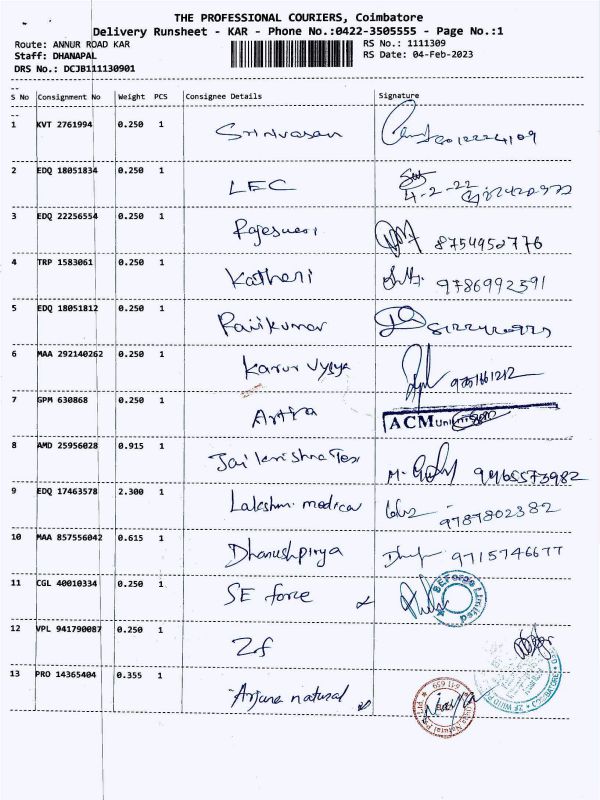 THE PROFESSIONAL COURIERS, Coimbatore
Delivery Runsheet - KAR - Phone No.:0422-3505555 - Page No.:1
Route: ANNUR ROAD KAR RS No.: 1111309
Staff: DHANAPAL RS Date: 04-Feb-2023
DRS No.: DCJB111130901
S No Consignment No Weight PCS Consignee Details Signature
1 KVT 2761994 0.250 1 Srinivasan
2 EDQ 18051834 0.250 1 LEC 4-2-22
3 EDQ 22256554 0.250 1 Rajeswari 8754950776
4 TRP 1583061 0.250 1 Katheri 9786992591
5 EDQ 18051812 0.250 1 Ranikumar
6 MAA 292140262 0.250 1 Karur Vysya
7 GPM 630868 0.250 1 ACM
8 AMD 25956028 0.915 1 Jai krishna Tex 9965573982
9 EDQ 17463578 2.300 1 Lakshmi medical 9787802382
10 MAA 857556042 0.615 1 Dhanushpirya 9715746677
11 CGL 40010334 0.250 1 SE force
12 VPL 941790087 0.250 1 Zf
13 PRO 14365404 0.355 1 Arjuna natural